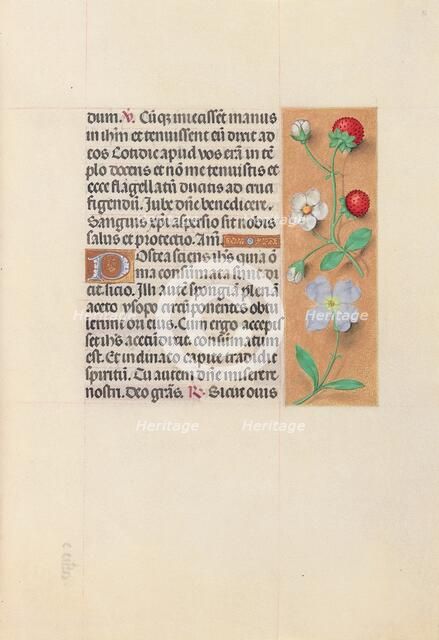 dum. V. Cūq; iniecisset manus
in ihm et tenuissent eū dixit ad
eos Cotidie apud vos erā in tē
plo docens et nō me tenuistis et
ecce flagellatū ducitis ad cruci
figendū. Iube dn̄e benedicere.
Sanguis xp̄i aspersio sit nobis
salus et protectio. Am̄
Postea sciens ihs quia ō
nia consumata sunt di
cit. sicio. Illi autē spongiā plenā
aceto ysopo circūponentes obtu
lerunt ori eius. Cum ergo accepis
set ihs acetū dixit. consummatum
est. Et inclinato capite tradidit
spiritū. Tu autem dn̄e miserere
nostri. Deo grās. R. Sicut ovis
Heritage Heritage
Heritage Heritage